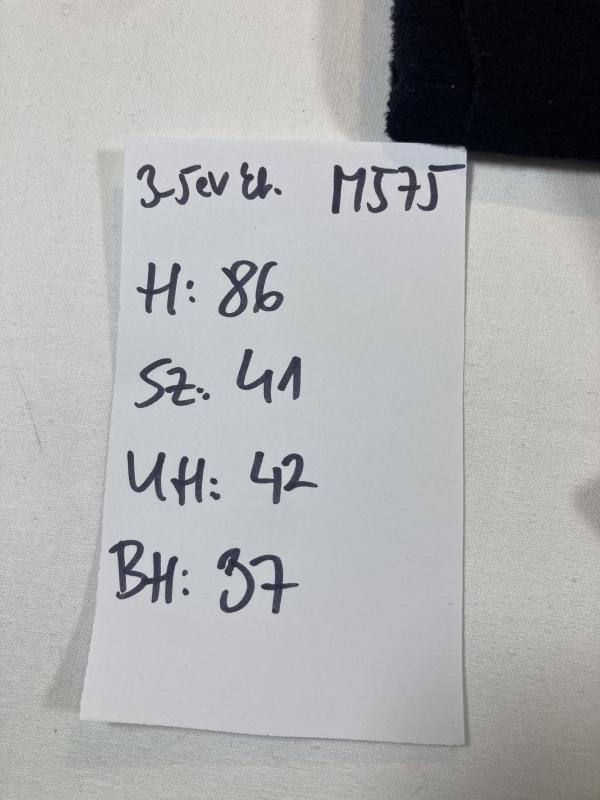 3-5 év M575
H: 86
Sz. 41
UH: 42
BH: 37